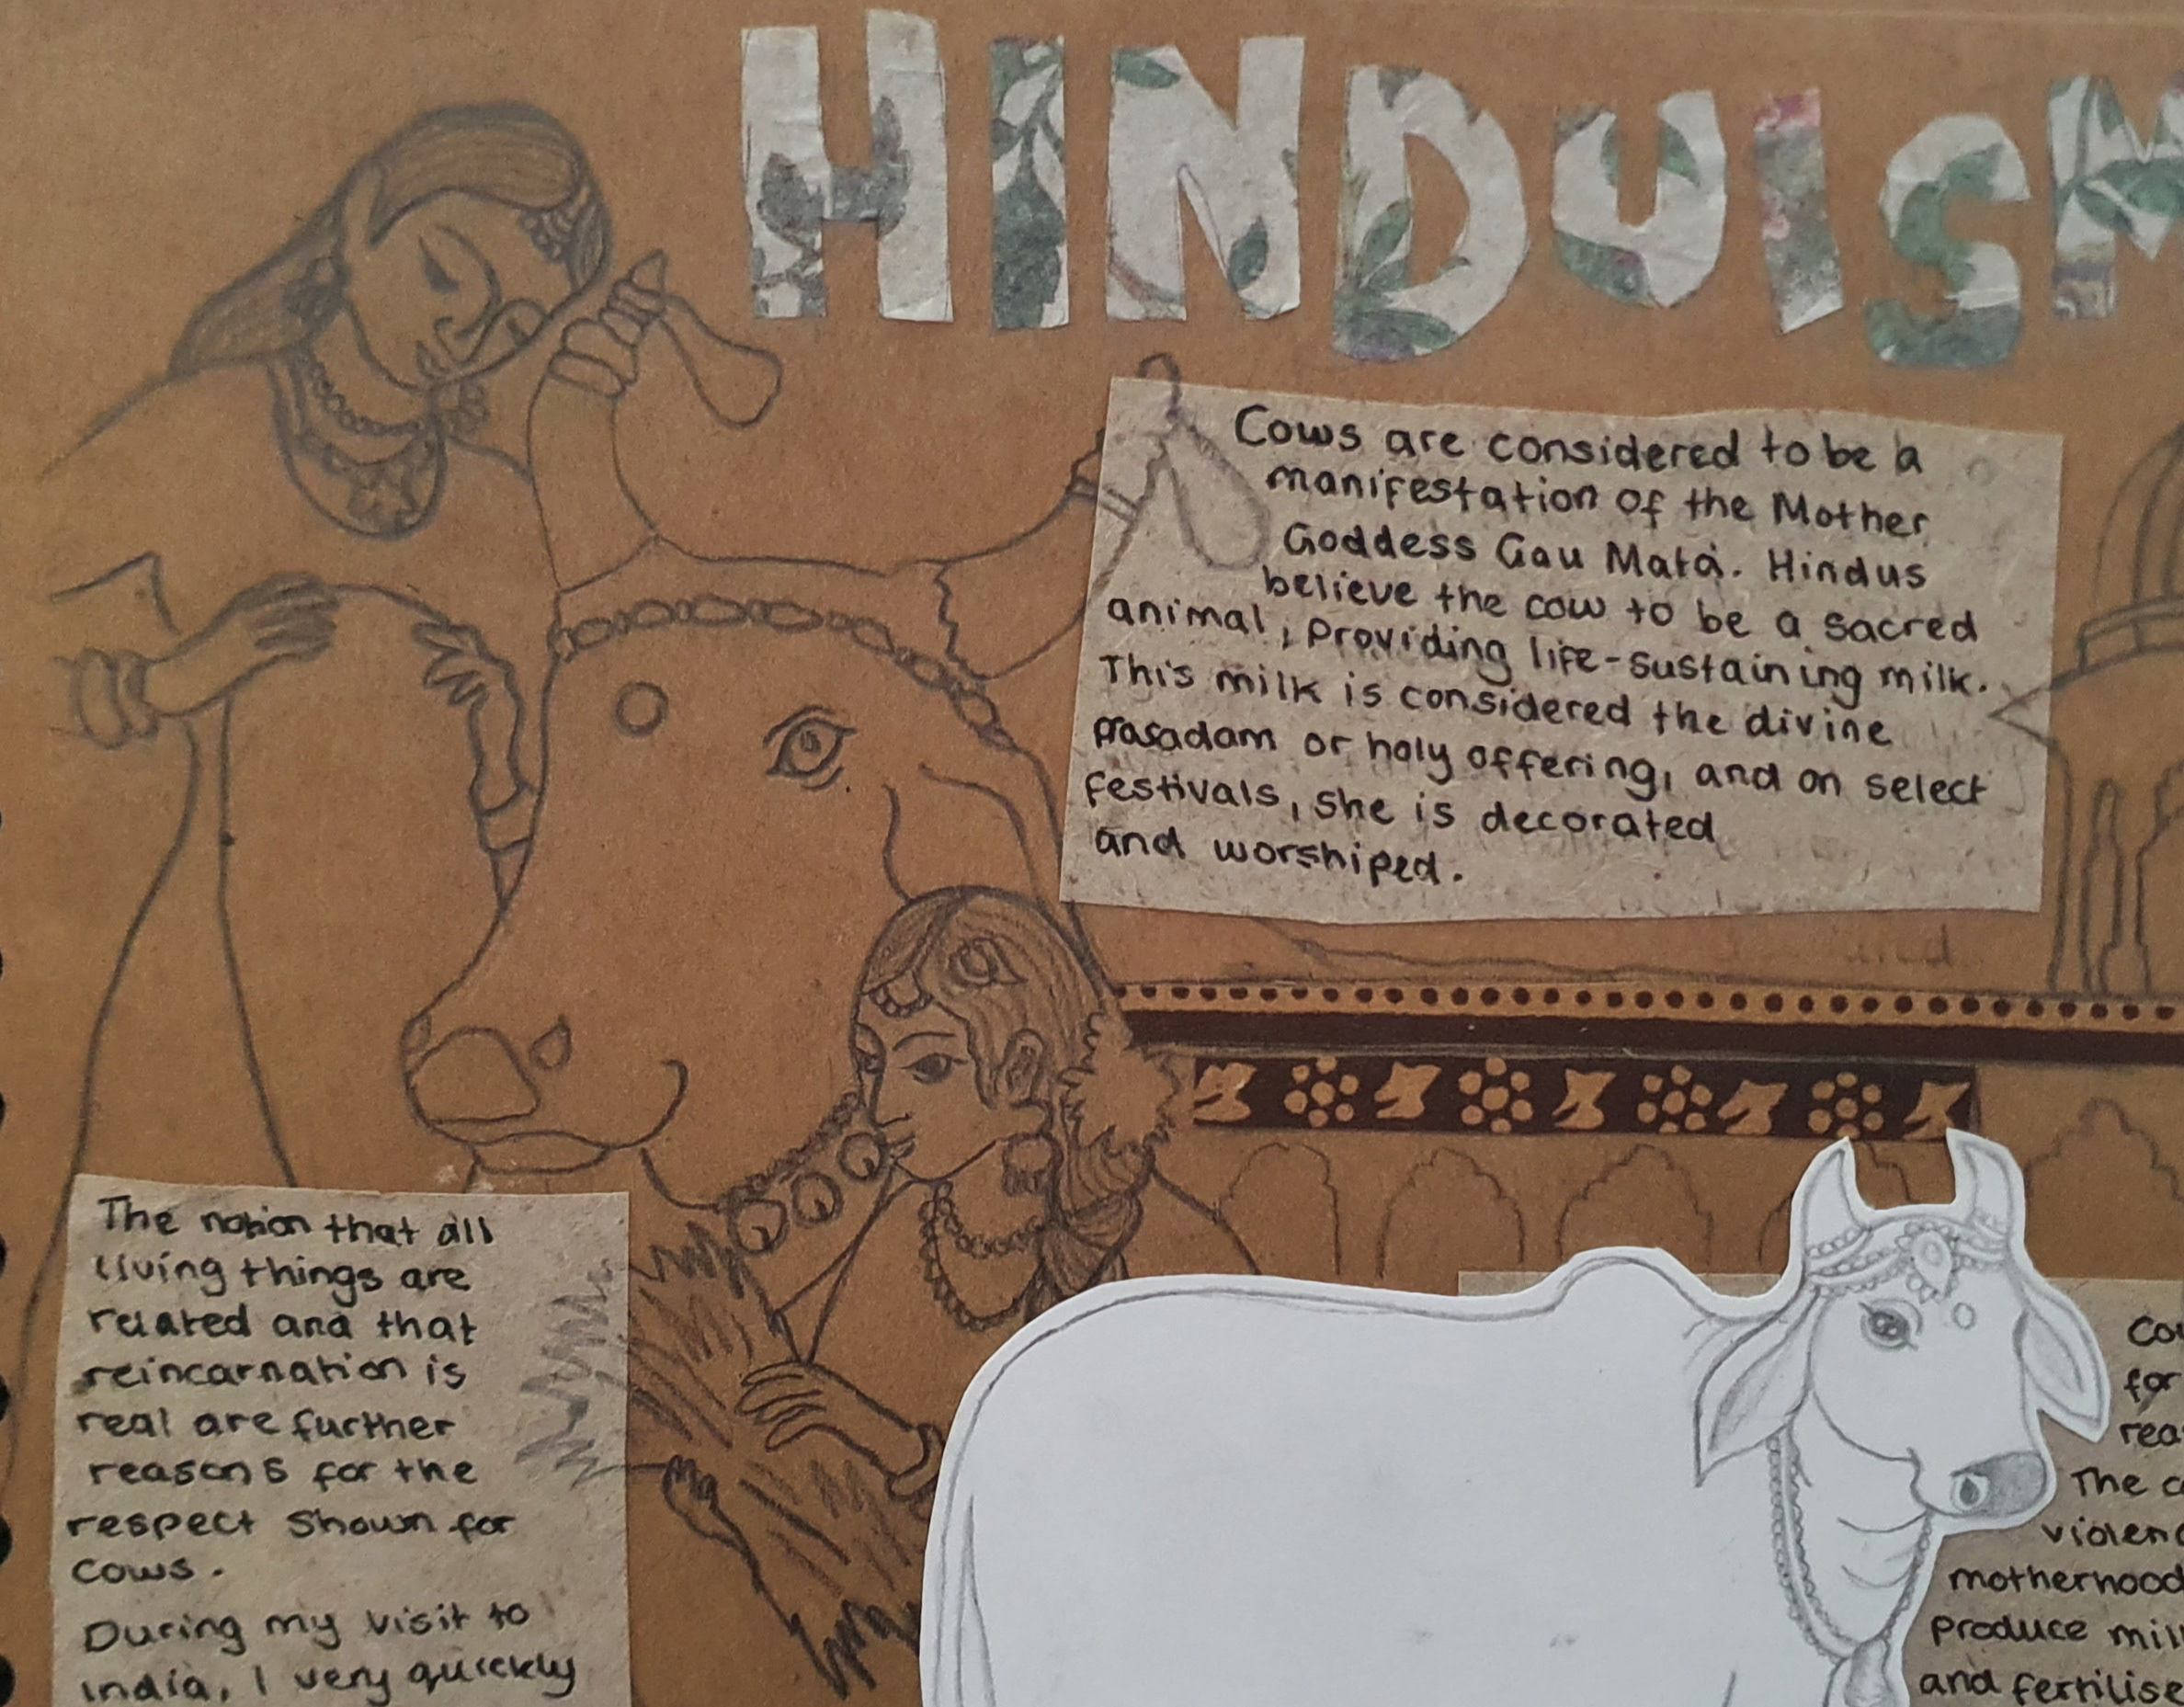 HINDUISM
Cows are considered to be a
manifestation of the Mother
Goddess Gau Mata. Hindus
believe the cow to be a sacred
animal, providing life-sustaining milk.
This milk is considered the divine
prasadam or holy offering, and on select
festivals, she is decorated
and worshiped.
The notion that all
living things are
related and that
reincarnation is
real are further
reasons for the
respect shown for
cows.
During my visit to
india, I very quickly
for
The
motherhood
produce
and